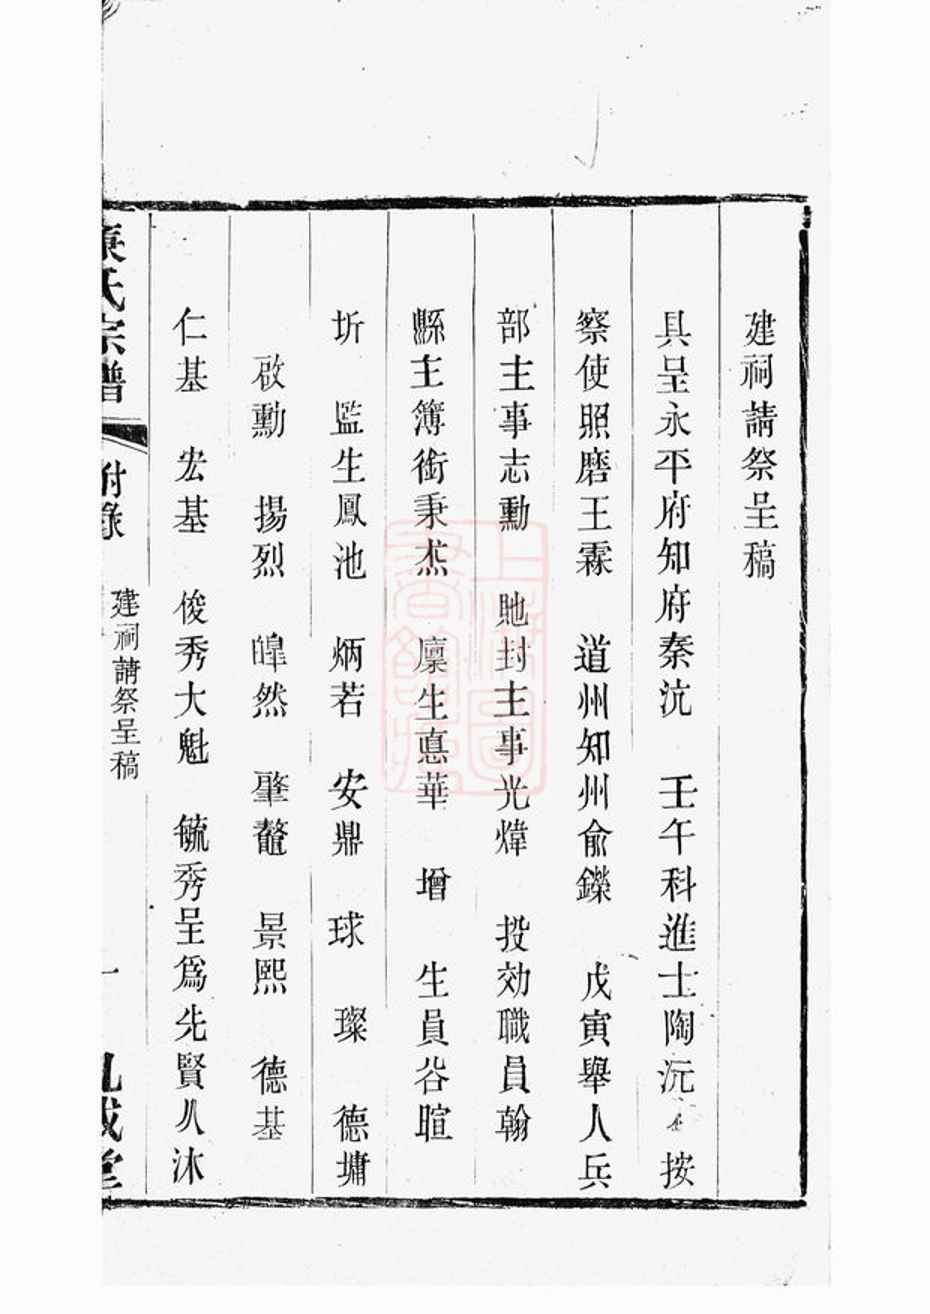 建祠請祭呈稿
具呈永平府知府秦沆　壬午科進士陶沅　按
察使照磨王霖　道州知州俞鑅　戊寅舉人兵
部主事志勳　貤封主事光煒　投効職員翰
縣主簿銜秉烋　廩生惪華　增　生員谷暄
圻　監生鳳池　炳若　安鼎　球　璨　德墉
啟勳　揚烈　皥然　肇鼇　景熙　德基
仁基　宏基　俊秀大魁　毓秀呈爲先賢久沐
氏宗譜
附錄
建祠請祭呈稿
一